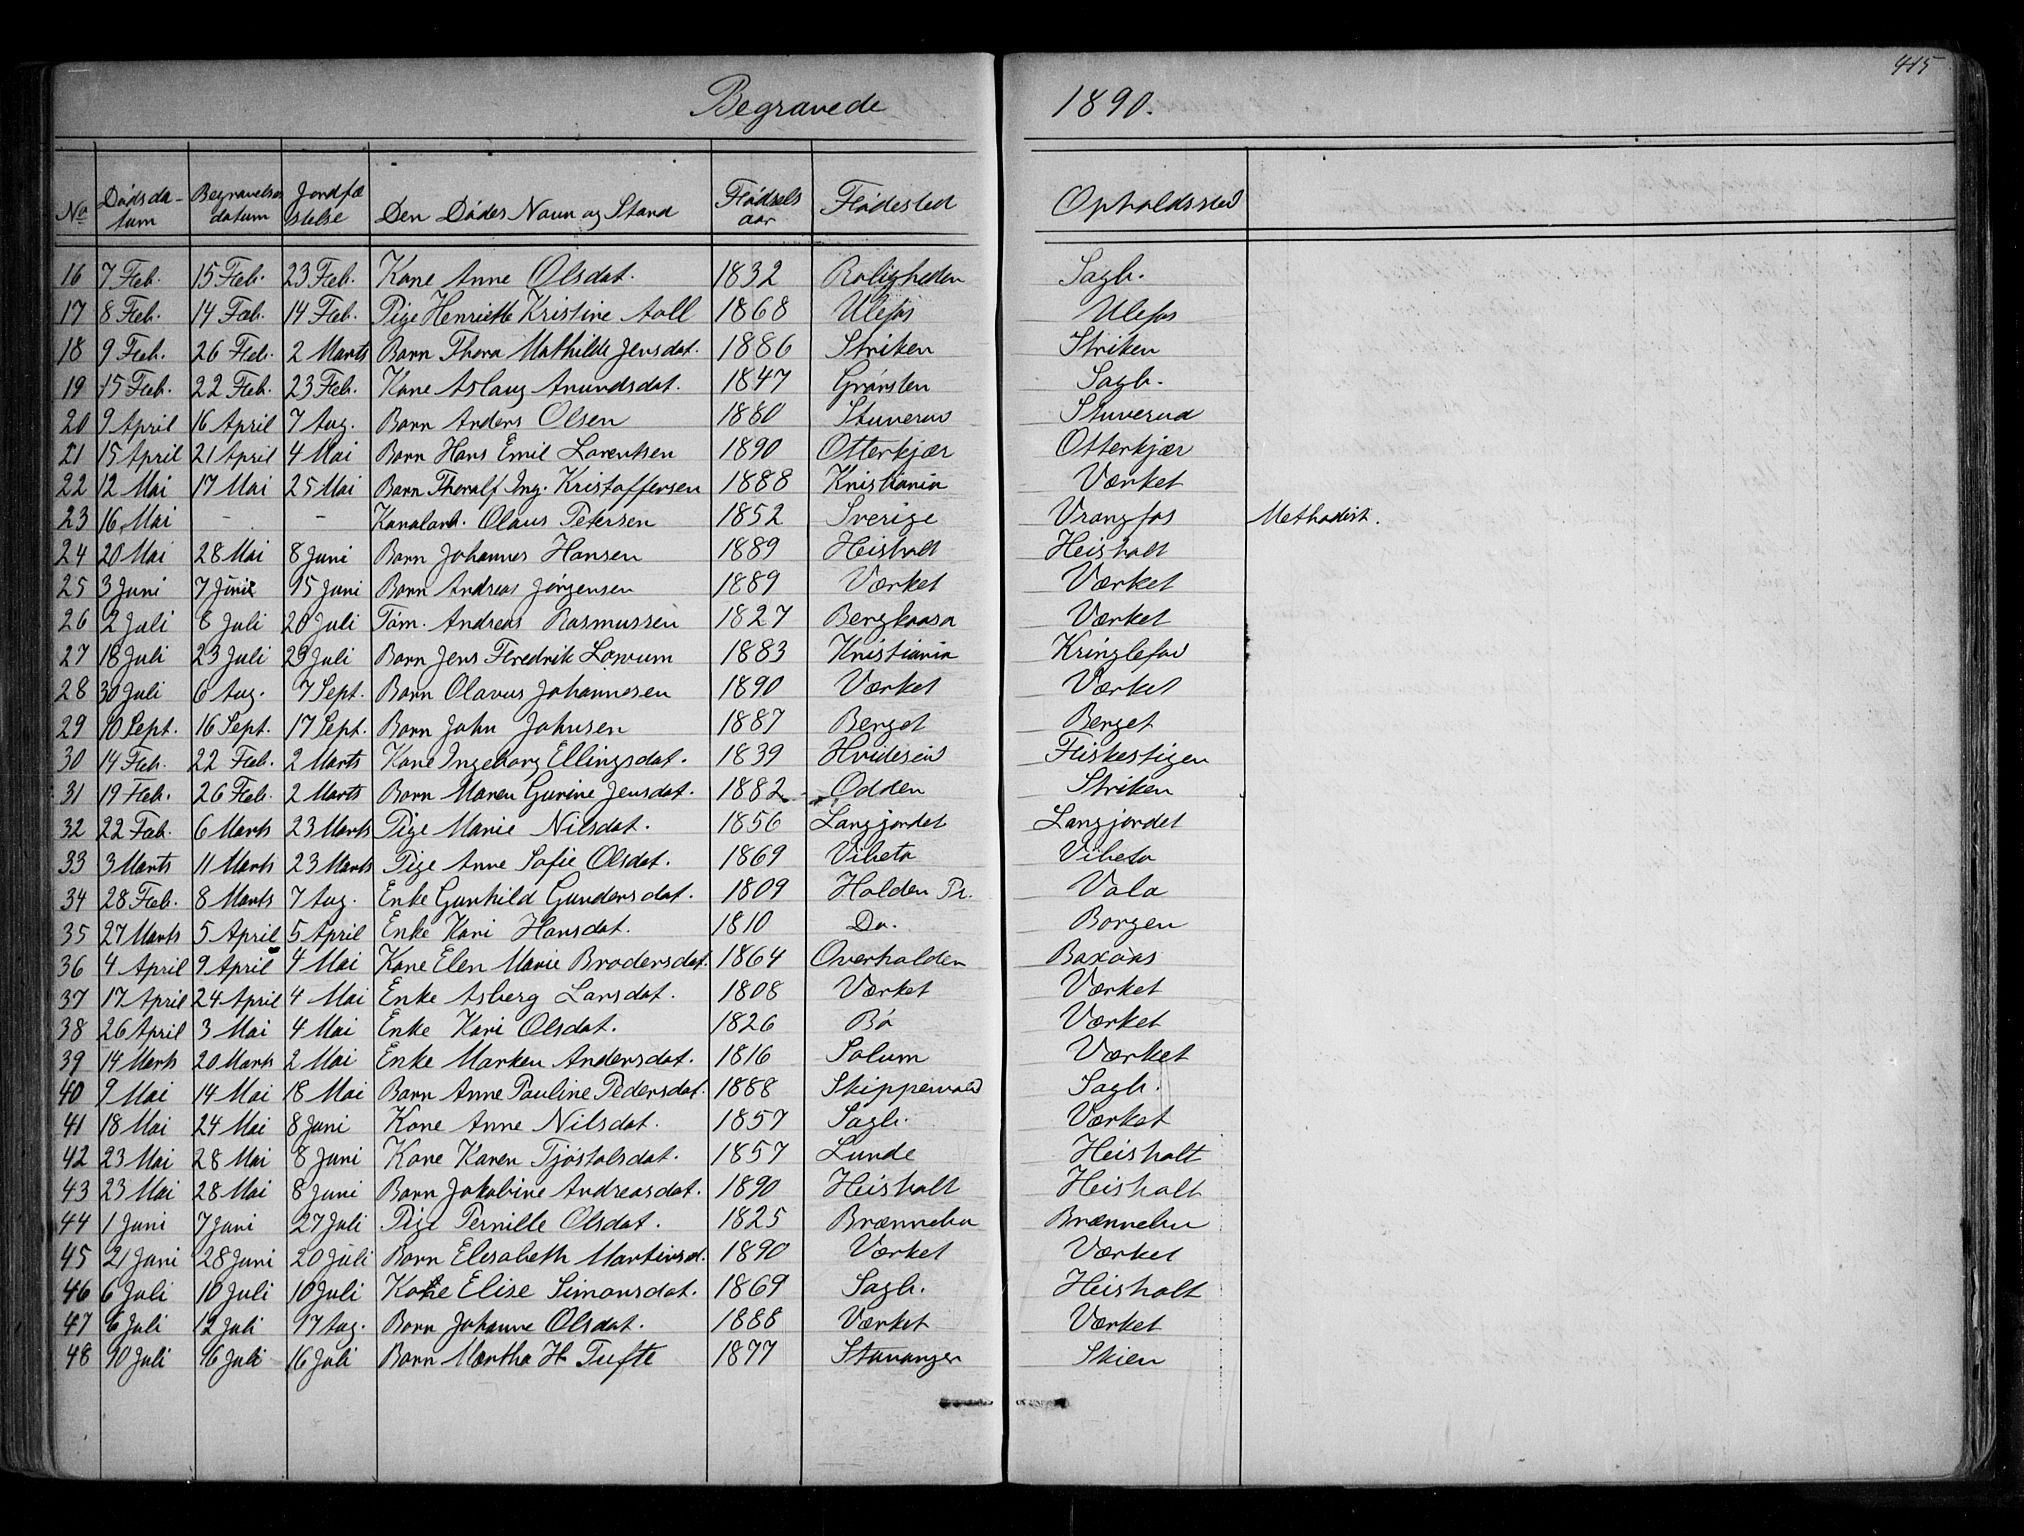 415
Begravede 1890.
No Dødsdatum Begravelsesdatum Jordfæstelse Den Dødes Navn og Stand Fødselsaar Fødested Opholdssted
16 7 Feb. 15 Feb. 23 Feb. Kone Anne Olsdat. 1832 Roligheden Sagb.
17 8 Feb. 14 Feb. 14 Feb. Pige Henriette Kristine Aall 1868 Ulefos Ulefos
18 9 Feb. 26 Feb. 2 Marts Barn Thora Mathilde Jensdat. 1886 Striken Striken
19 15 Feb. 22 Feb. 23 Feb. Kone Aslaug Anundsdat. 1847 Grønsten Sagb.
20 9 April 16 April 7 Aug. Barn Anders Olsen 1880 Stuverud Stuverud
21 15 April 21 April 4 Mai Barn Hans Emil Lorentsen 1890 Otterkjær Otterkjær
22 12 Mai 17 Mai 25 Mai Barn Thoralf Ing. Kristoffersen 1888 Kristiania Værket
23 16 Mai - - Kanalarb. Olaus Petersen 1852 Sverige Vrangfos Methodist.
24 20 Mai 28 Mai 8 Juni Barn Johannes Hansen 1889 Heisholt Heisholt
25 3 Juni 7 Juni 15 Juni Barn Andreas Jørgensen 1889 Værket Værket
26 2 Juli 8 Juli 20 Juli Tøm. Andreas Rasmussen 1827 Bergkaasa Værket
27 18 Juli 23 Juli 23 Juli Barn Jens Fredrik Lowum 1883 Kristiania Kringlefos
28 30 Juli 6 Aug. 7 Sept. Barn Olavus Johannesen 1890 Værket Værket
29 10 Sept. 16 Sept. 17 Sept. Barn John Johnsen 1887 Berget Berget
30 14 Feb. 22 Feb. 2 Marts Kone Ingeborg Ellingsdat. 1839 Hvideseid Fiskestigen
31 19 Feb. 26 Feb. 2 Marts Barn Maren Gurine Jensdat. 1882 Odden Striken
32 22 Feb. 6 Marts 23 Marts Pige Marie Nilsdat. 1856 Langjordet Langjordet
33 3 Marts 11 Marts 23 Marts Pige Anne Sofie Olsdat. 1869 Vibeto Vibeto
34 28 Feb. 8 Marts 7 Aug. Enke Gunhild Gundersdat. 1809 Holden Pr. Vala
35 27 Marts 5 April 5 April Enke Kari Hansdat. 1810 Do. Borgen
36 4 April 9 April 4 Mai Kone Elen Marie Brodersdat. 1864 Overholden Baxaas
37 17 April 24 April 4 Mai Enke Asberg Larsdat. 1808 Værket Værket
38 26 April 3 Mai 4 Mai Enke Kari Olsdat. 1826 Bø Værket
39 14 Marts 20 Marts 2 Mai Enke Marken Andersdat. 1816 Solum Værket
40 9 Mai 14 Mai 18 Mai Barn Anne Pauline Pedersdat. 1888 Skippervold Sagb.
41 18 Mai 24 Mai 8 Juni Kone Anne Nilsdat. 1857 Sagb. Værket
42 23 Mai 28 Mai 8 Juni Kone Karen Tjøstolsdat. 1857 Lunde Heisholt
43 23 Mai 28 Mai 8 Juni Barn Jakobine Andreasdat. 1890 Heisholt Heisholt
44 1 Juni 7 Juni 27 Juli Pige Pernille Olsdat. 1825 Brænnebu Brænnebu
45 21 Juni 28 Juni 20 Juli Barn Elisabeth Martinsd. 1890 Værket Værket
46 6 Juli 10 Juli 10 Juli Kone Elise Simonsdat. 1869 Sagb. Heisholt
47 6 Juli 12 Juli 17 Aug. Barn Johanne Olsdat. 1888 Værket Værket
48 10 Juli 16 Juli 16 Juli Barn Martha H. Tufte 1877 Stavanger Skien